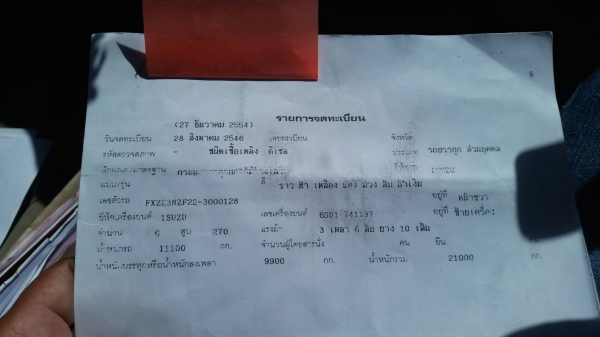 8
(27 ธันวาคม 2554) รายการจดทะเบียน
วันจดทะเบียน 28 สิงหาคม 2546 เลขทะเบียน จังหวัด
รหัสตรวจสภาพ - ชนิดเชื้อเพลิง ดีเซล ประเภท รถบรรทุก ส่วนบุคคล
ลักษณะ/มาตรฐาน กระบะ
แบบ/รุ่น สี ขาว ฟ้า เหลือง แดง ม่วง ส้ม น้ำเงิน
เลขตัวรถ FXZ23N2F22-3000128 อยู่ที่ คัสซีขวา
ยี่ห้อเครื่องยนต์ ISUZU เลขเครื่องยนต์ 6SD1 741197 อยู่ที่ ซ้ายเครื่อง
จำนวน 6 สูบ 270 แรงม้า 3 เพลา 6 ล้อ ยาง 10 เส้น
น้ำหนักรถ 11100 กก. จำนวนผู้โดยสารนั่ง คน ยืน คน
น้ำหนักบรรทุกหรือน้ำหนักลงเพลา 9900 กก. น้ำหนักรวม 21000 กก.